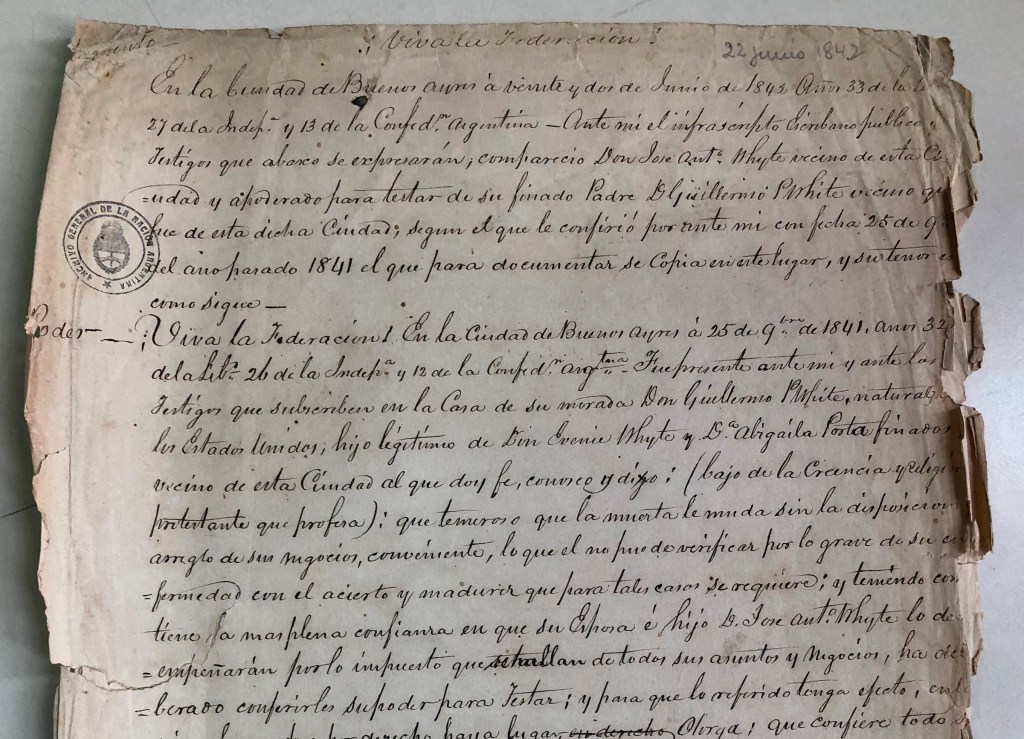 ¡Viva la Federacion!
22 junio 1842
En la Ciudad de Buenos Ayres à veinte y dos de Junio de 1842. Años 33 de la
27 de la Indepª y 13 de la Confedn Argentina — Ante mi el infrascripto Escribano publico y
Testigos que abaxo se expresarán, comparecio Don José Antº Whyte vecino de esta Ci
=udad y apoderado para testar de su finado Padre D. Guillermo P. White vecino que
fue de esta dicha Ciudad; segun el que le confirió por ante mi con fecha 25 de 9
del año pasado 1841 el que para documentar se Copia en este lugar, y su tenor e
como sigue —
ARCHIVO GENERAL DE LA NACION ARGENTINA
Poder — ¡Viva la Federacion! En la Ciudad de Buenos Ayres à 25 de 9bre de 1841. Años 32
de la Libª 26 de la Indepª y 12 de la Confedn Argtina - Fue presente ante mi y ante los
Testigos que subscriben en la Casa de su morada Don Guillermo P. White, natural
los Estados Unidos, hijo legítimo de Don Evenie Whyte y Dª Abigaila Porta finados
vecino de esta Ciudad al que doy fe, conosco y dixo: (bajo de la Creencia y Religio
protestante que profesa): que temeroso que la muerte le muda sin la disposicion
arreglo de sus negocios, conveniente, lo que el no puede verificar por lo grave de su en
=fermedad con el acierto y madurez que para tales casos se requiere; y teniendo con
tiene la mas plena confianza en que su Esposa é hijo D. José Antº Whyte lo de
=empeñarán por lo impuesto que se hallan de todos sus asuntos y negocios, ha deli
=berado conferirles su poder para Testar; y para que lo referido tenga efecto, en la
derecho haya lugar en derecho Otorga: que confiere todo s